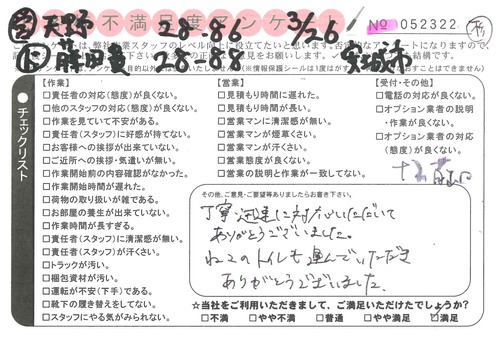 天野 28-86 3/26
不満足度アンケート No 052322
藤田 28-88 安城市
チェックリスト
【作業】
□責任者の対応(態度)が良くない。
□他のスタッフの対応(態度)が良くない。
□作業を見ていて不安がある。
□責任者(スタッフ)に好感が持てない。
□お客様への挨拶が出来ていない。
□ご近所への挨拶・気遣いが無い。
□作業開始前の内容確認がなかった。
□作業開始時間が遅れた。
□荷物の取り扱いが雑である。
□お部屋の養生が出来ていない。
□作業時間が長すぎる。
□責任者(スタッフ)に清潔感が無い。
□責任者(スタッフ)が汗くさい。
□トラックが汚い。
□梱包資材が汚い。
□運転が不安(下手)である。
□靴下の履き替えをしてない。
□スタッフにやる気がみられない。
【営業】
□見積もり時間に遅れた。
□見積もり時間が長い。
□営業マンに清潔感が無い。
□営業マンが煙草くさい。
□営業マンが汗くさい。
□営業態度が良くない。
□営業の説明と作業が一致してない。
【受付・その他】
□電話の対応が良くない。
□オプション業者の説明
・作業が良くない。
□オプション業者の対応
(態度)が良くない。
その他、ご意見・ご要望等ありましたらお書き下さい。
丁寧迅速に対応いただいて
ありがとうございました。
ねこのトイレも運んでいただき
ありがとうございました。
☆当社をご利用いただきまして、ご満足いただけたでしょうか?
□不満 □やや不満 □普通 □やや満足 □満足